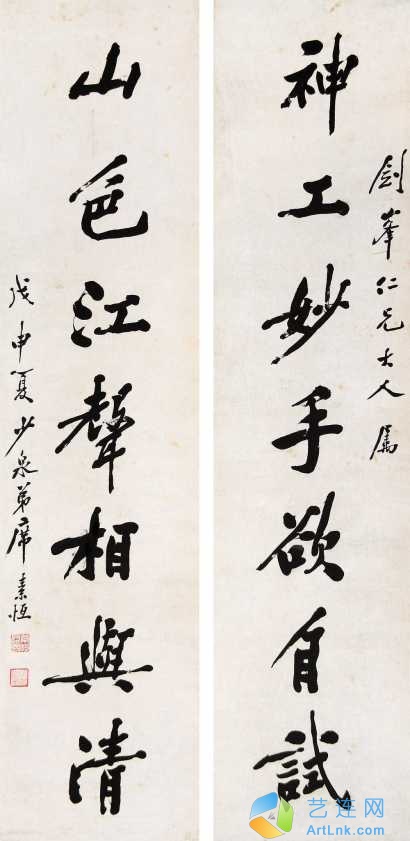 劍峯仁兄大人屬
神工妙手欲自試
山色江聲相與清
戊申夏少泉弟席素恒
艺连网
ArtLnk.com